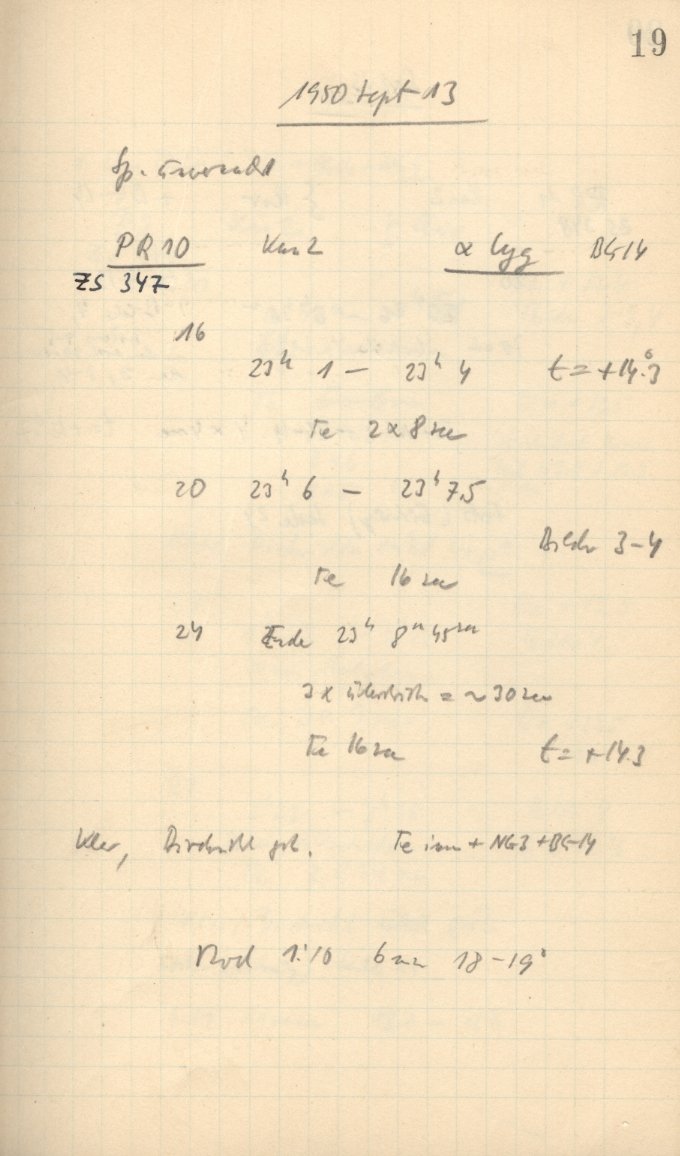 19
1950 Sept 13
Sp.
PR 10 Kam 2 α Cyg BG 14
ZS 347
16
23h 1 — 23h 4 t = +14.°3
Te 2 x 8 sec
20 23h 6 — 23h 7.5
Bilder 3-4
Te 16 sec
24 Ende 23h 8m 45sec
= ~ 30 sec
Te 16 sec t = +14.3
Klar, Te + NG3 + BG14
Rod 1:10 6 min 18-19°